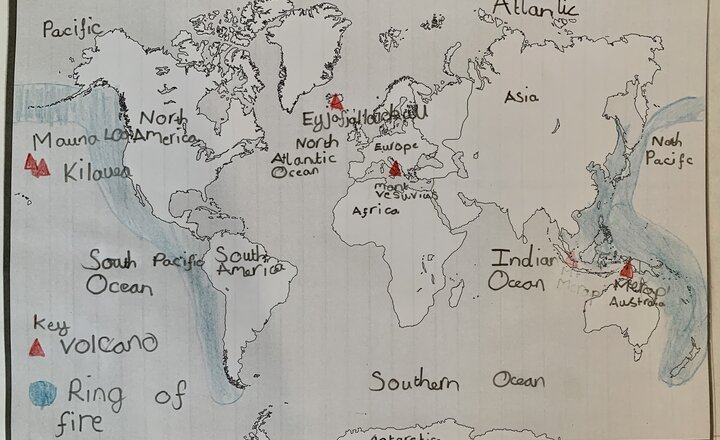 Atlantic
Pacific
Asia
North
America
Mauna Loa
Kilauea
Eyjafjallajökull
North
Atlantic
Ocean
Europe
Mont
Vesuvius
Africa
Noth
Pacific
South Pacific
Ocean
South
America
Indian
Ocean
Merap
Australia
Key
volcano
Ring of
fire
Southern Ocean
Antarctica